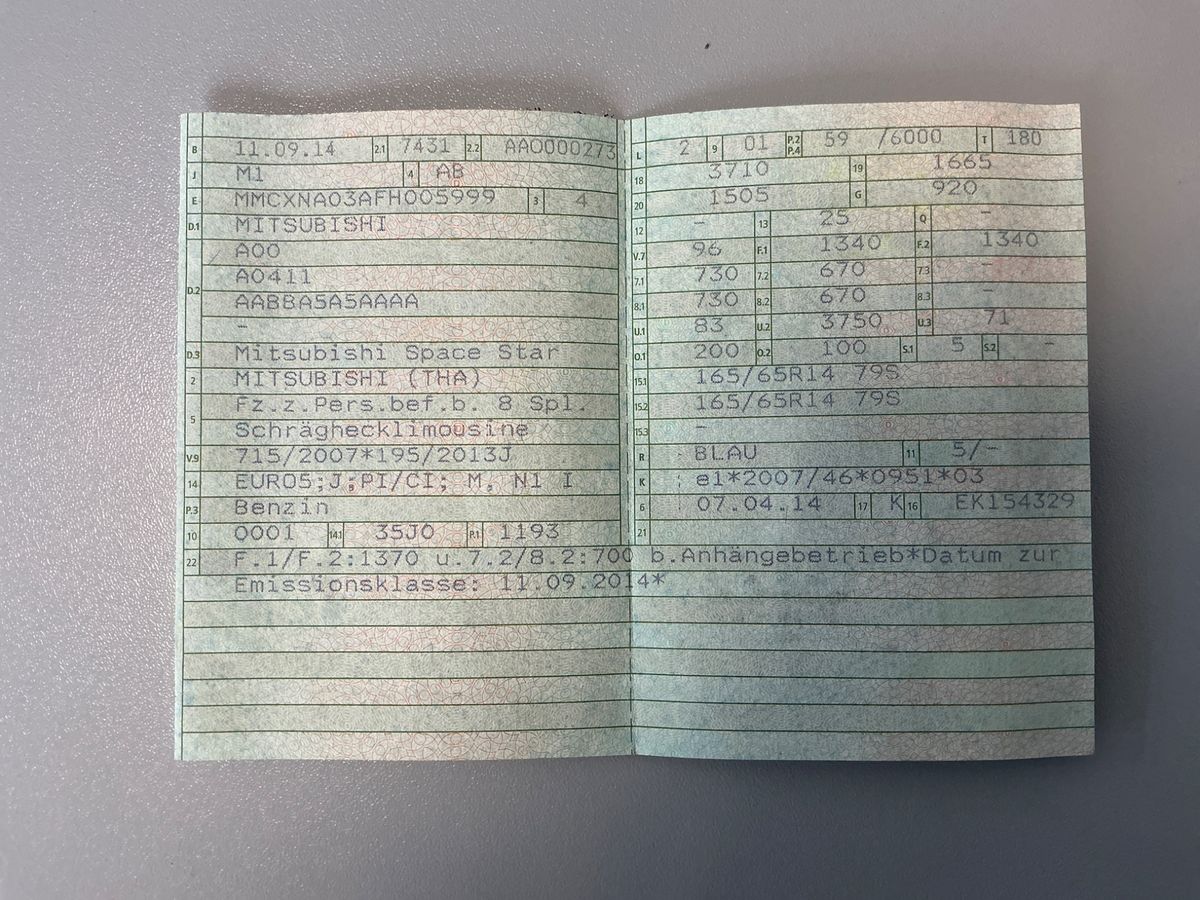 B 11.09.14 2.1 7431 2.2 AAO000273
J M1 4 AB
E MMCXNA03AFH005999 3 4
D.1 MITSUBISHI
A00
D.2 A0411
AABBA5A5AAAA
–
D.3 Mitsubishi Space Star
2 MITSUBISHI (THA)
5 Fz.z.Pers.bef.b. 8 Spl.
Schräghecklimousine
V.9 715/2007*195/2013J
14 EURO5;J;PI/CI; M, N1 I
P.3 Benzin
10 0001 14.1 35J0 P.1 1193
L 2 9 01 P.2 P.4 59 /6000 T 180
18 3710 19 1665
20 1505 G 920
12 – 13 25 Q –
V.7 96 F.1 1340 F.2 1340
7.1 730 7.2 670 7.3 –
8.1 730 8.2 670 8.3 –
U.1 83 U.2 3750 U.3 71
O.1 200 O.2 100 S.1 5 S.2 –
15.1 165/65R14 79S
15.2 165/65R14 79S
15.3 –
R BLAU 11 5/–
K e1*2007/46*0951*03
6 07.04.14 17 K 16 EK154329
21
22 F.1/F.2:1370 u.7.2/8.2:700 b.Anhängebetrieb*Datum zur
Emissionsklasse: 11.09.2014*